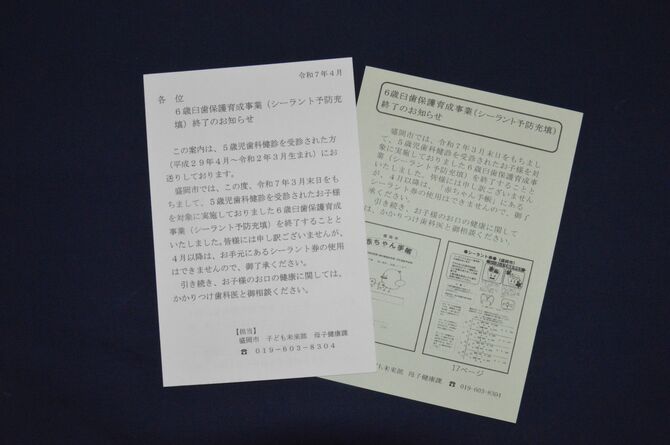 令和7年4月
各 位
6歳臼歯保護育成事業(シーラント予防充
填)終了のお知らせ
この案内は、5歳児歯科健診を受診された方
(平成29年4月~令和2年3月生まれ)にお
送りしております。
盛岡市では、この度、令和7年3月末日をも
ちまして、5歳児歯科健診を受診されたお子様
を対象に実施しておりました6歳臼歯保護育成
事業(シーラント予防充填)を終了することと
いたしました。皆様には申し訳ございませんが、
4月以降は、お手元にあるシーラント券の使用
はできませんので、御了承ください。
引き続き、お子様のお口の健康に関しては、
かかりつけ歯科医と御相談ください。
【担当】
盛岡市 子ども未来部 母子健康課
☎ 019-603-8304
6歳臼歯保護育成事業(シーラント予防充填)
終了のお知らせ
盛岡市では、令和7年3月末日をもちまし
て、5歳児歯科健診を受診されたお子様を対
象に実施しておりました6歳臼歯保護育成事
業(シーラント予防充填)を終了することと
いたしました。皆様には申し訳ございません
が、4月以降は、「赤ちゃん手帳」にある
シーラント券の使用はできませんので、御了
承ください。
引き続き、お子様のお口の健康に関して
は、かかりつけ歯科医と御相談ください。
盛岡市
赤ちゃん手帳
●シーラント券●(盛岡市)
17ページ
子ども未来部 母子健康課 ☎ 019-603-8304